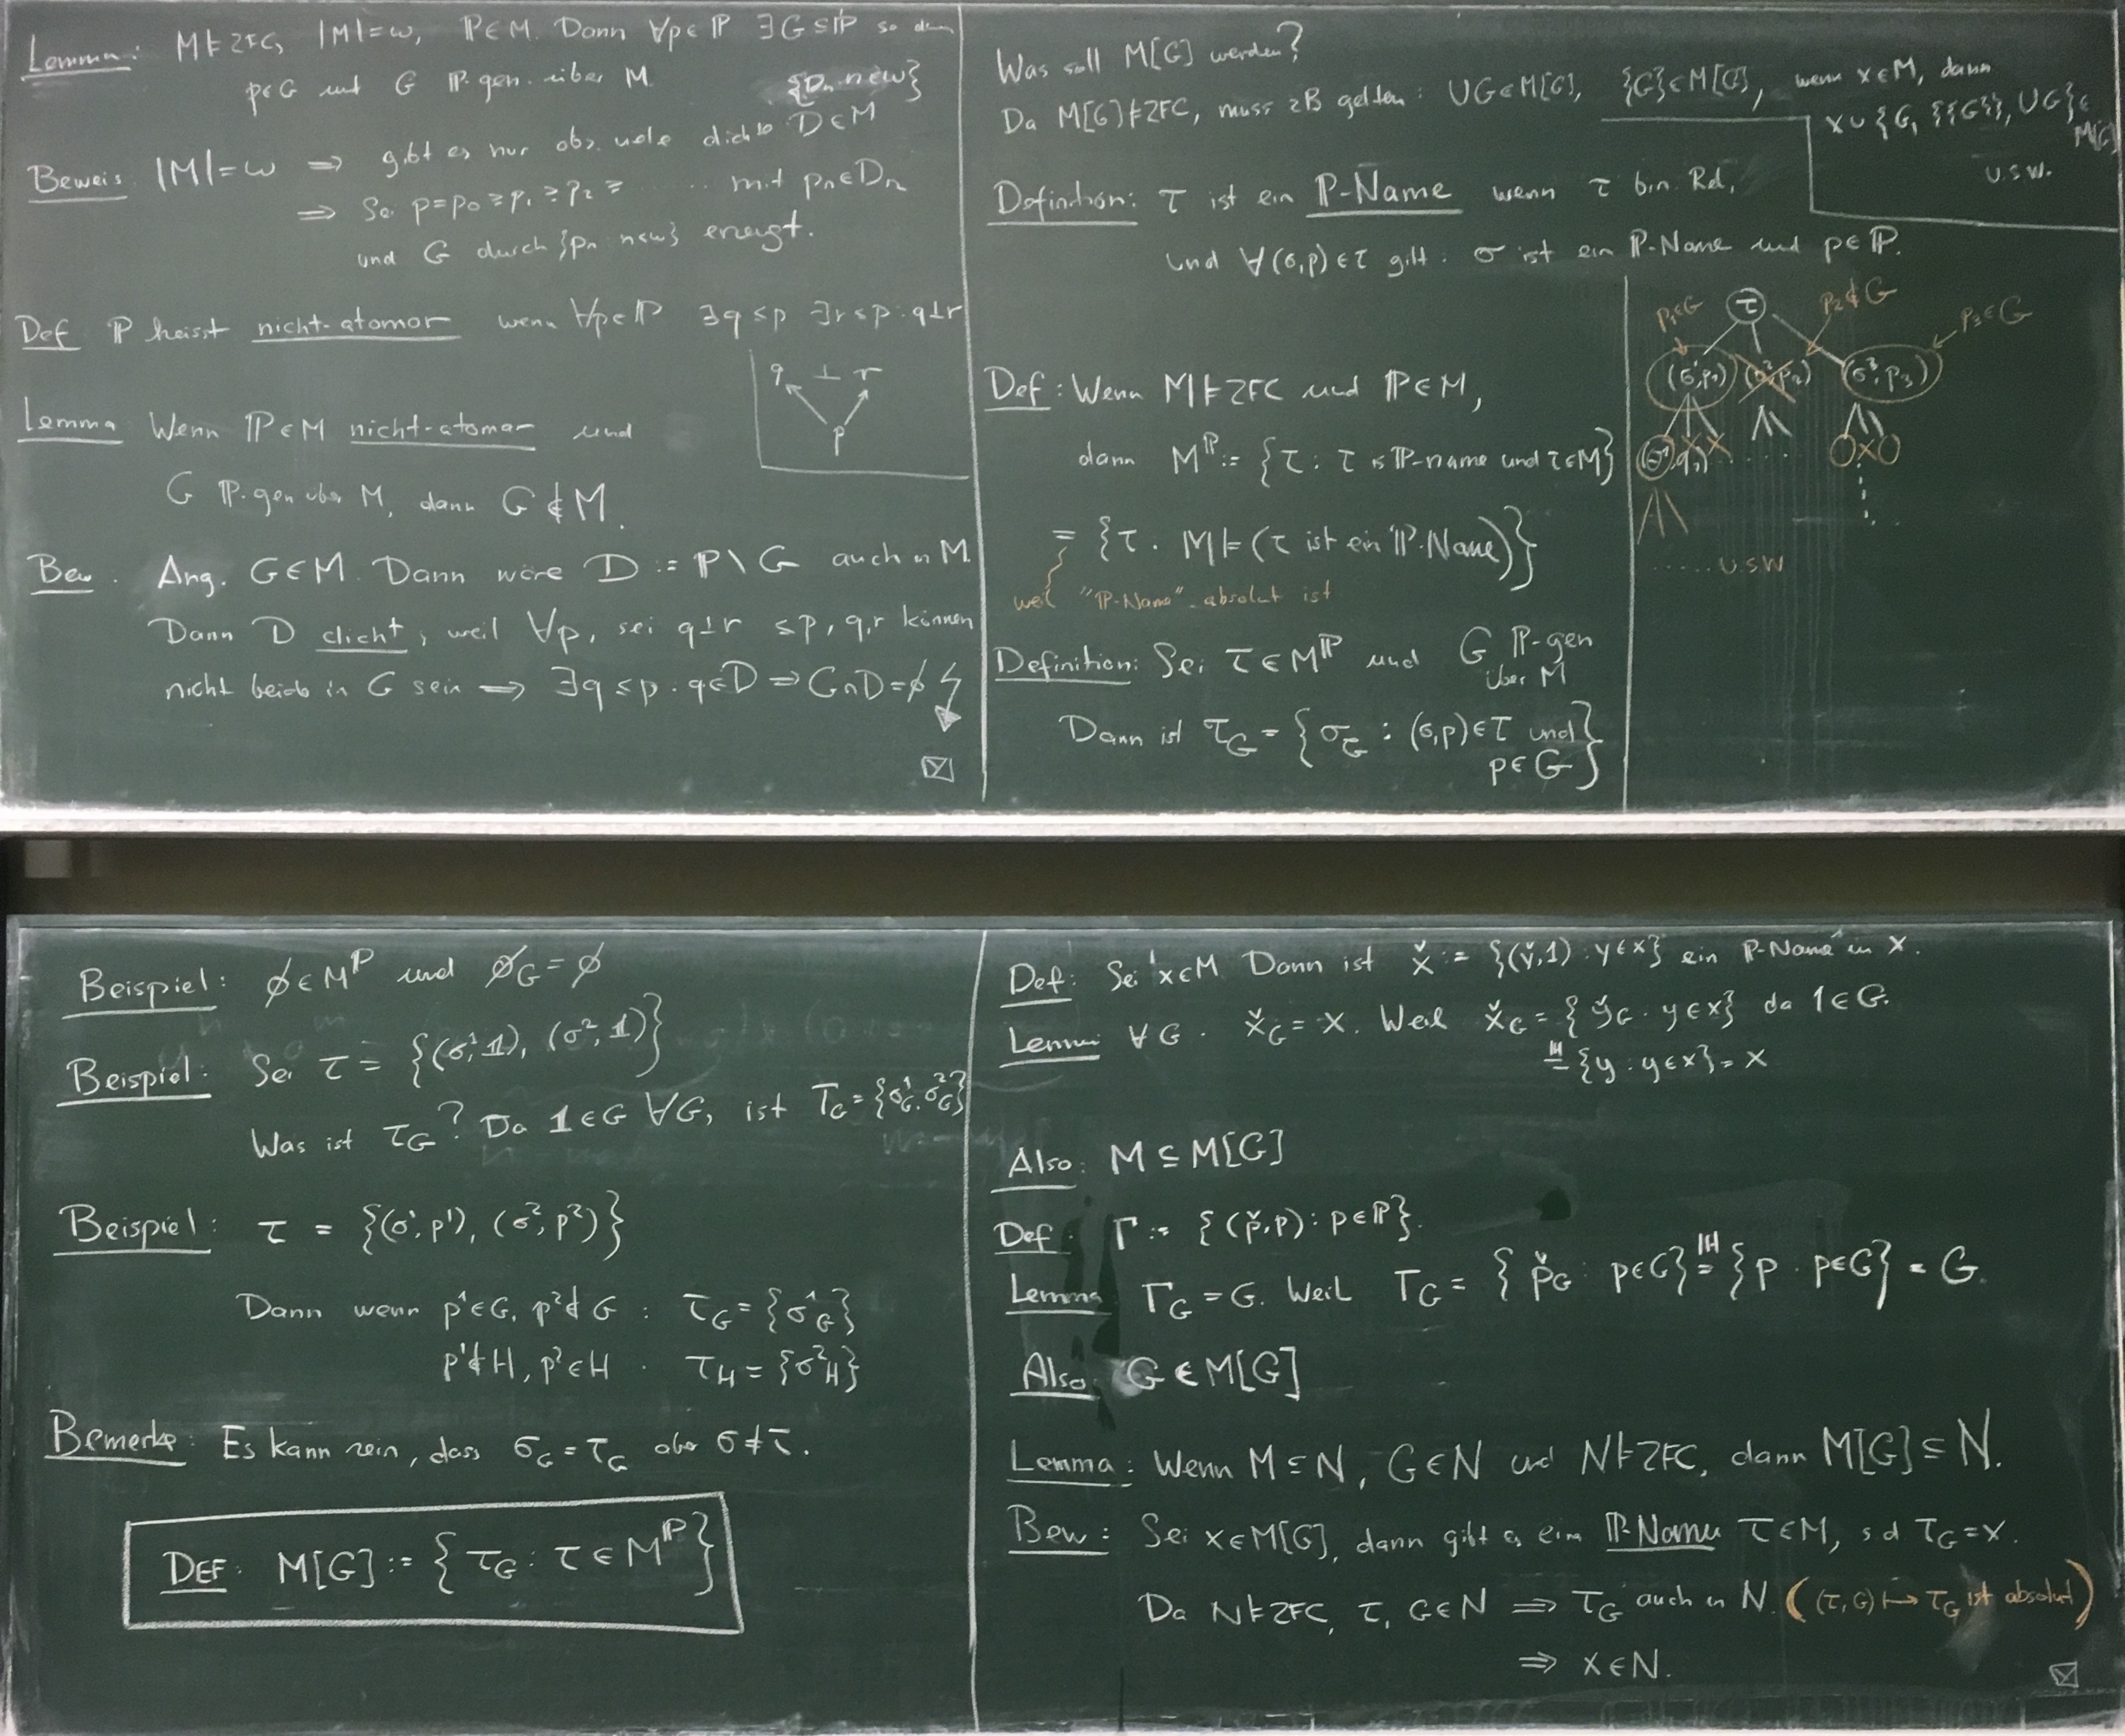 Lemma: M ⊨ ZFC, |M|=ω, ℙ∈M. Dann ∀p∈ℙ ∃G⊆ℙ so dass
p∈G und G ℙ-gen. über M.
{Dₙ n∈ω}
Beweis |M|=ω ⇒ gibt es nur abz. viele dichte D∈M
⇒ Sei p=p₀≥p₁≥p₂≥ ..... mit pₙ∈Dₙ
und G durch {pₙ n∈ω} erzeugt.
Def ℙ heisst nicht-atomar wenn ∀p∈ℙ ∃q≤p ∃r≤p: q⊥r
q ⊥ r
p
Lemma Wenn ℙ∈M nicht-atomar und
G ℙ-gen über M, dann G∉M.
Bew. Ang. G∈M. Dann wäre D := ℙ\G auch in M.
Dann D dicht, weil ∀p, sei q⊥r ≤p, q,r können
nicht beide in G sein ⇒ ∃q≤p: q∈D ⇒ G∩D=∅ ↯
Was soll M[G] werden?
Da M[G]⊨ZFC, muss zB gelten: ∪G∈M[G], {G}∈M[G], wenn x∈M, dann
x∪{G, {{G}}, ∪G}∈
M[G]
u.s.w.
Definition: τ ist ein ℙ-Name wenn τ bin. Rel,
und ∀(σ,p)∈τ gilt: σ ist ein ℙ-Name und p∈ℙ.
Def: Wenn M⊨ZFC und ℙ∈M,
dann M^ℙ := {τ: τ is ℙ-name und τ∈M}
= {τ. M⊨(τ ist ein ℙ-Name)}
weil "ℙ-Name" absolut ist
Definition: Sei τ∈M^ℙ und G ℙ-gen
über M
Dann ist τ_G = {σ_G : (σ,p)∈τ und
p∈G}
p₁∈G τ p₂∉G p₃∈G
(σ¹,p₁) (σ²,p₂) (σ³,p₃)
..... u.s.w
Beispiel: ∅∈M^ℙ und ∅_G=∅
Beispiel: Sei τ = {(σ¹,𝟙), (σ²,𝟙)}
Was ist τ_G? Da 𝟙∈G ∀G, ist τ_G={σ¹_G, σ²_G}
Beispiel: τ = {(σ¹,p¹), (σ²,p²)}
Dann wenn p¹∈G, p²∉G : τ_G={σ¹_G}
p¹∉H, p²∈H . τ_H={σ²_H}
Bemerke: Es kann sein, dass σ_G=τ_G aber σ≠τ.
DEF: M[G] := {τ_G : τ∈M^ℙ}
Def: Sei x∈M Dann ist x̌ := {(y̌,1) : y∈x} ein ℙ-Name in x.
Lemma ∀G. x̌_G = x. Weil x̌_G = {y̌_G . y∈x} da 1∈G.
IH= {y : y∈x} = x
Also: M⊆M[G]
Def. Γ := {(p̌,p) : p∈ℙ}.
Lemma Γ_G=G. Weil Γ_G = {p̌_G : p∈G} IH= {p . p∈G} = G.
Also G∈M[G]
Lemma: Wenn M⊆N, G∈N und N⊨ZFC, dann M[G]⊆N.
Bew: Sei x∈M[G], dann gibt es ein ℙ-Name τ∈M, s d τ_G=x.
Da N⊨ZFC, τ, G∈N ⇒ τ_G auch in N. ((τ,G)↦τ_G ist absolut)
⇒ x∈N.